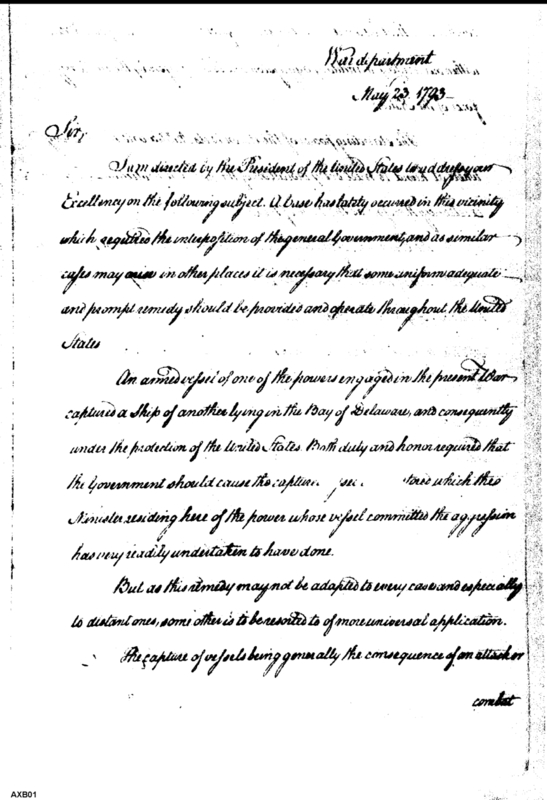 War department
May 23. 1793
Sir,
I am directed by the President of the United States to address your
Excellency on the following subject. A case has lately occurred in this vicinity
which required the interposition of the general Government, and as similar
cases may arise in other places it is necessary that some uniform adequate
and prompt remedy should be provided and operate throughout the United
States
An armed vessel of one of the powers engaged in the present War
captured a Ship of another lying in the Bay of Delaware, and consequently
under the protection of the United States. Both duty and honor required that
the Government should cause the capture which the
Minister residing here of the power whose vessel committed the aggression
has very readily undertaken to have done.
But as this remedy may not be adapted to every case and especially
to distant ones, some other is to be resorted to of more universal application.
The capture of vessels being generally the consequence of an attack or
combat
AXB01